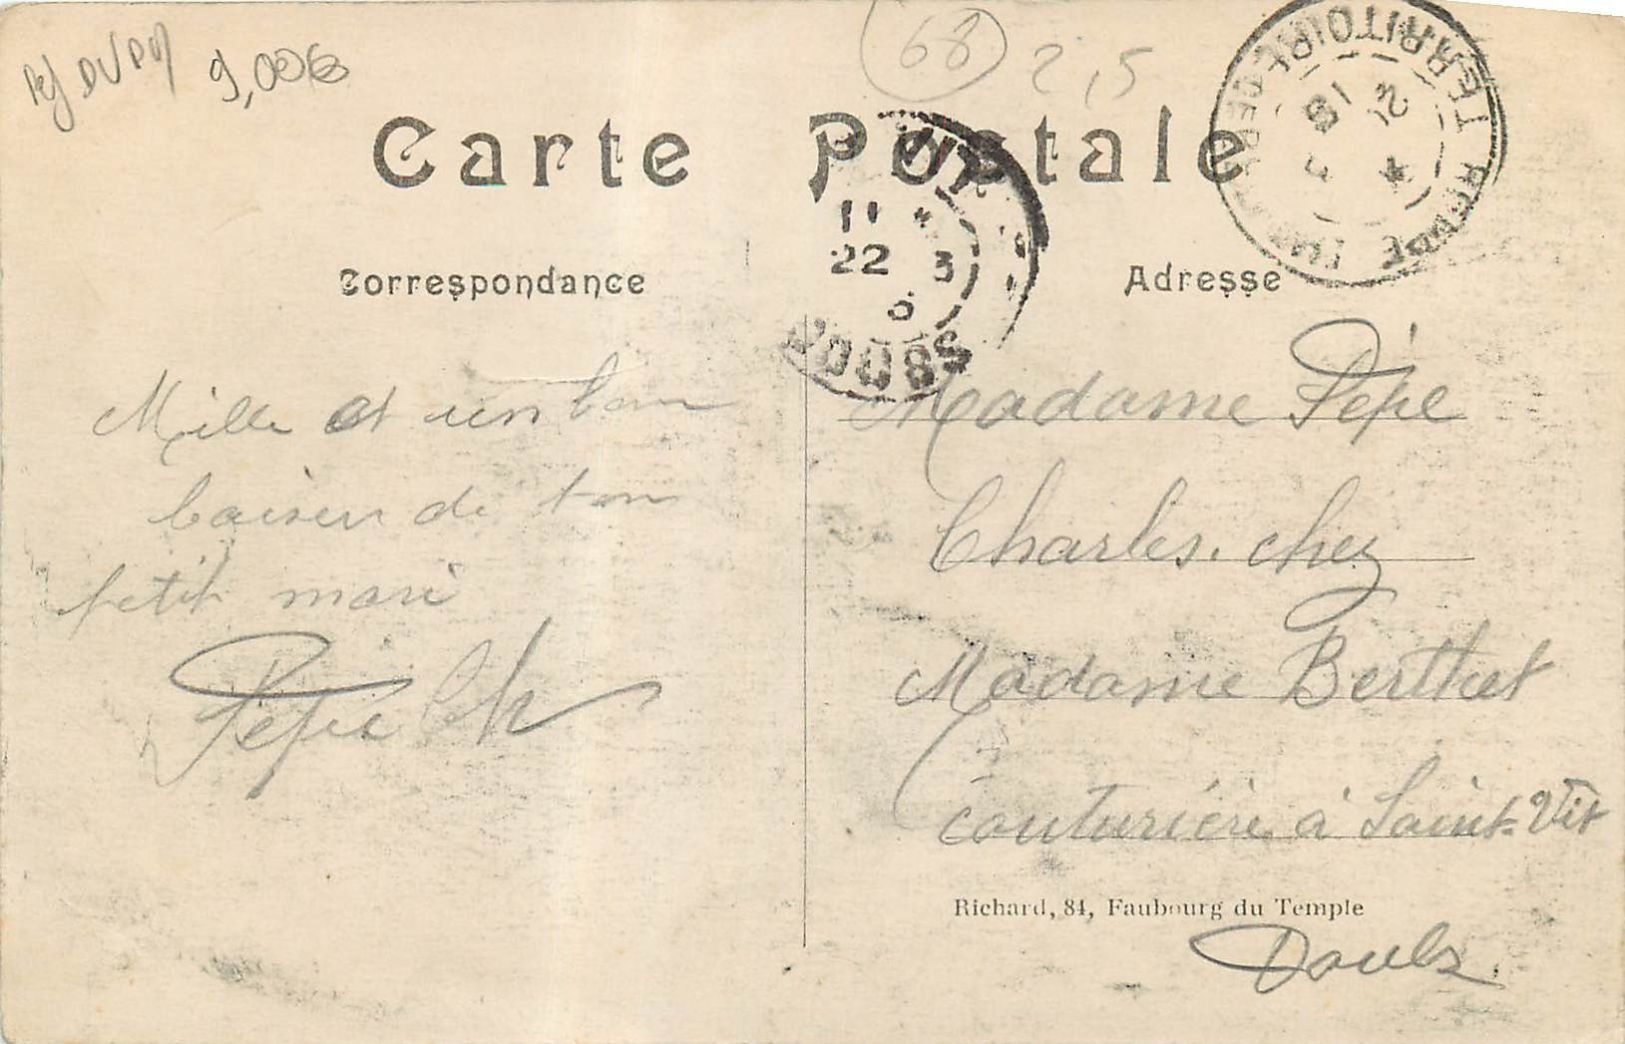 68
2,5
9,00€
Carte Postale
Correspondance
Adresse
TERRITOIRE DE
18
11 *
22 3
DOUBS
Mille et un bon
baiser de ton
petit mari
Pépe Ch
Madame Pépe
Charles. chez
Madame Berthet
couturière à Saint-Vit
Richard, 84, Faubourg du Temple
Doubs